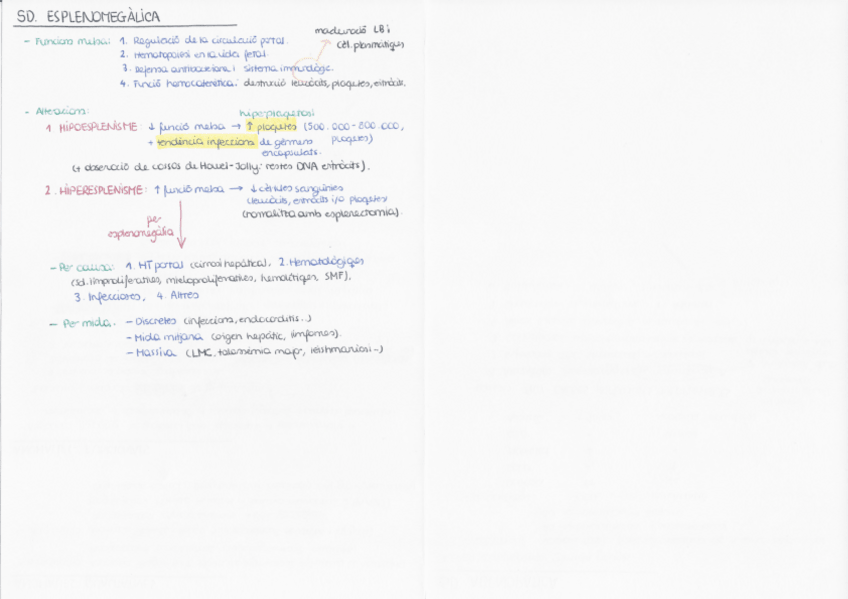 SD. ESPLENOMEGÀLICA
maduració LB i
cèl. plasmàtiques
- Funcions melsa: 1. Regulació de la circulació portal.
2. Hematopoiesi en la vida fetal.
3. Defensa antibacteriana i sistema immunològic.
4. Funció hemocaterètica: destrucció leucòcits, plaquetes, eritròcits.
- Alteracions:
hiperplaquetosi
1. HIPOESPLENISME: ↓ funció melsa → ↑ plaquetes (500.000-800.000,
plaquetes)
+ tendència infeccions de gèrmens
encapsulats.
(+ observació de cossos de Howel-Jolly: restes DNA eritròcits).
2. HIPERESPLENISME: ↑ funció melsa → ↓ cèl·lules sanguínies
(leucòcits, eritròcits i/o plaquetes
(normalitza amb esplenectomia).
per
esplenomegàlia
- Per causa: 1. HT portal (cirrosi hepàtica), 2. Hematològiques
(sd. limproliferatives, mieloproliferatives, hemolítiques, SMF),
3. Infeccions, 4. Altres
- Per mida: - Discretes (infeccions, endocarditis...)
- Mida mitjana (origen hepàtic, limfomes).
- Massiva (LMC, talassèmia major, leishmaniosi...)